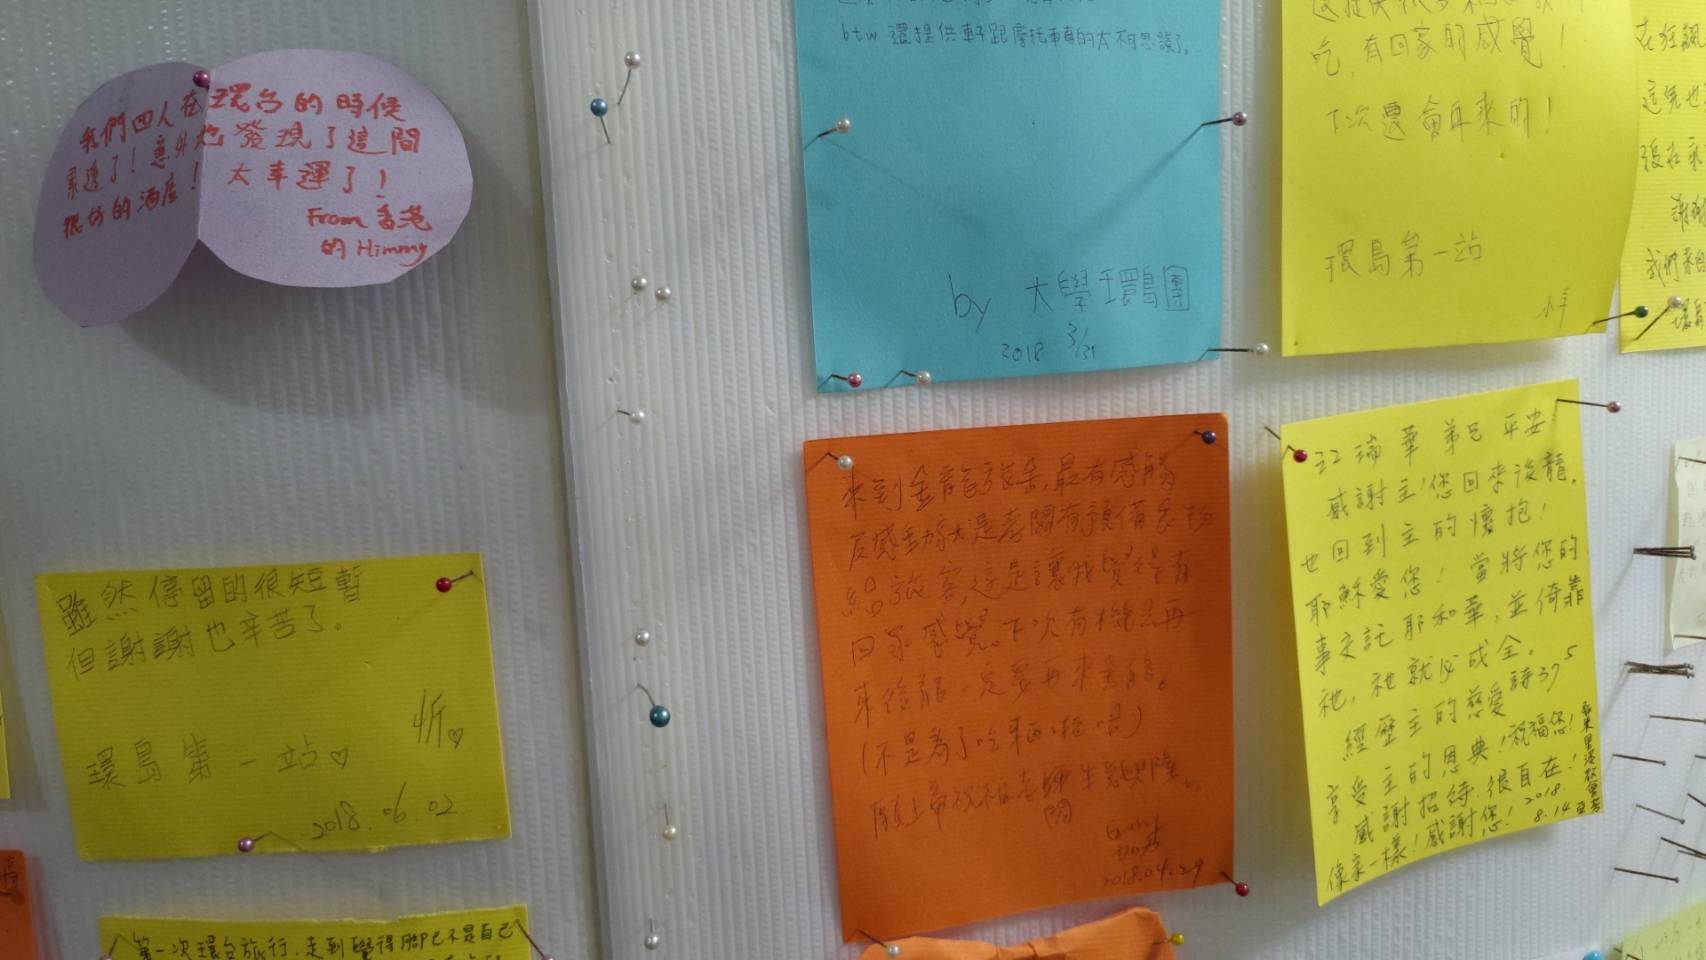 我們四人在環台的時候
累透了！意外地發現了這間
很好的酒店！太幸運了！
From 香港
的 Himmy
雖然停留的很短暫
但謝謝也辛苦了。
忻♡
環島第一站♡
2018.06.02.
第一次環台旅行.走到覺得腳已不是自己
btw 還提供車子跟摩托車真的太不可思議了。
by 大學環島團
2018 3/31
吃,有回家的感覺！
下次還會再來的！
環島第一站
來到金龍旅舍,最有感觸
反感動的就是老闆有預備食物
給旅客,這是讓我覺得有
回家感覺。下次有機會再
來後龍一定要再來金龍。
(不是為了吃東西啦 唷)
願上帝祝福老闆生意興隆。
2018.04.29
江瑞華弟兄平安！
感謝主!您回來後龍,
也回到主的懷抱!
耶穌愛您！當將您的
事交託耶和華,並倚靠
祂,祂就必成全。
經歷主的慈愛詩37 5
享受主的恩典!祝福您!
感謝招待.很自在!
像家一樣!感謝您! 2018.
8.14
在狂飆
這兒也
我們來自